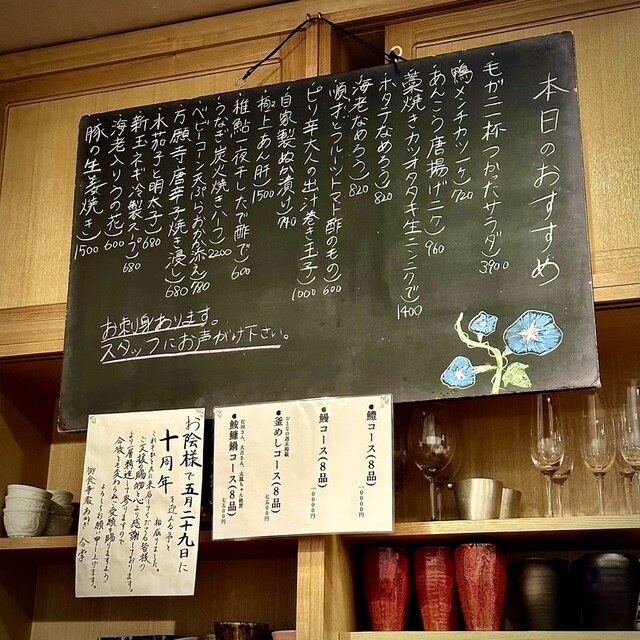 本日のおすすめ
・毛ガニ一杯つかったサラダ） 3900
・鴨メンチカツ一ケ） 720
・あんこう唐揚げ二ケ） 960
・藁焼きカツオタタキ生ニンニクで 1400
・ホタテなめろう） 820
・海老なめろう） 820
・順才とフルーツトマト酢のもの） 600
・ピリ辛大人の出汁巻き玉子） 1000
・自家製ぬか漬け） 740
・極上あん肝） 1500
・稚鮎一夜干したで酢で） 600
・うなぎ炭火焼きハーフ） 2200
・ベビーコーン天ぷらおかか添え） 780
・万願寺唐辛子焼き浸し） 680
・水茄子と明太子） 680
・新玉ネギ冷製スープ） 680
・海老入りうの花） 600
・豚の生姜焼き） 1500
お刺身あります。
スタッフにお声がけ下さい。
・鱧コース（8品） 一〇〇〇〇円
・鰻コース（8品） 一〇〇〇〇円
おとなの週末掲載
・釜めしコース（8品） 七五〇〇円
・鮟鱇鍋コース（8品） 七五〇〇円
お陰様で五月二十九日に
十周年を迎える事と
相成りました。